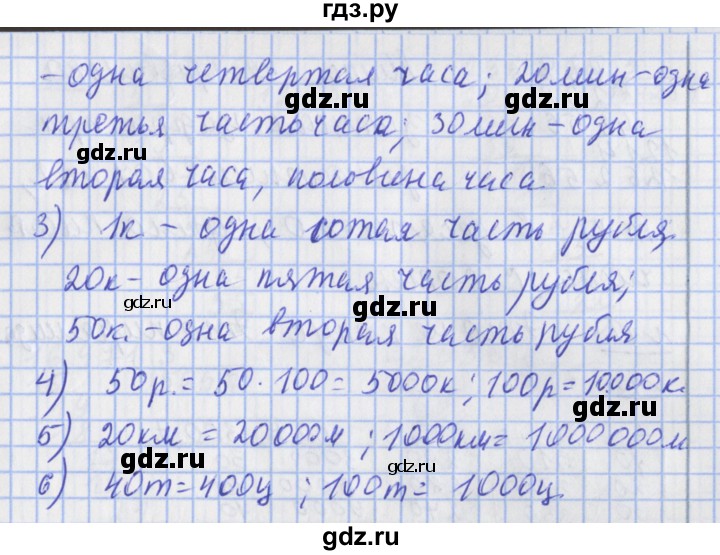 гдз.ру
- одна четвертая часа; 20 мин - одна
gdz.ru
gdz.ru
третья часть часа; 30 мин - одна
gdz.ru
вторая часа, половина часа
gdz.ru
3) 1к - одна сотая часть рубля,
20к - одна пятая часть рубля;
gdz.ru
gdz.ru
50к. - одна вторая часть рубля
gdz.ru
4) 50р. = 50 · 100 = 5000к; 100р = 10000к.
gdz.ru
5) 20км = 20000м; 1000км = 1000000м
gdz.ru
gdz.ru
6) 40т = 400ц; 100т = 1000ц.
gdz.ru
gdz.ru